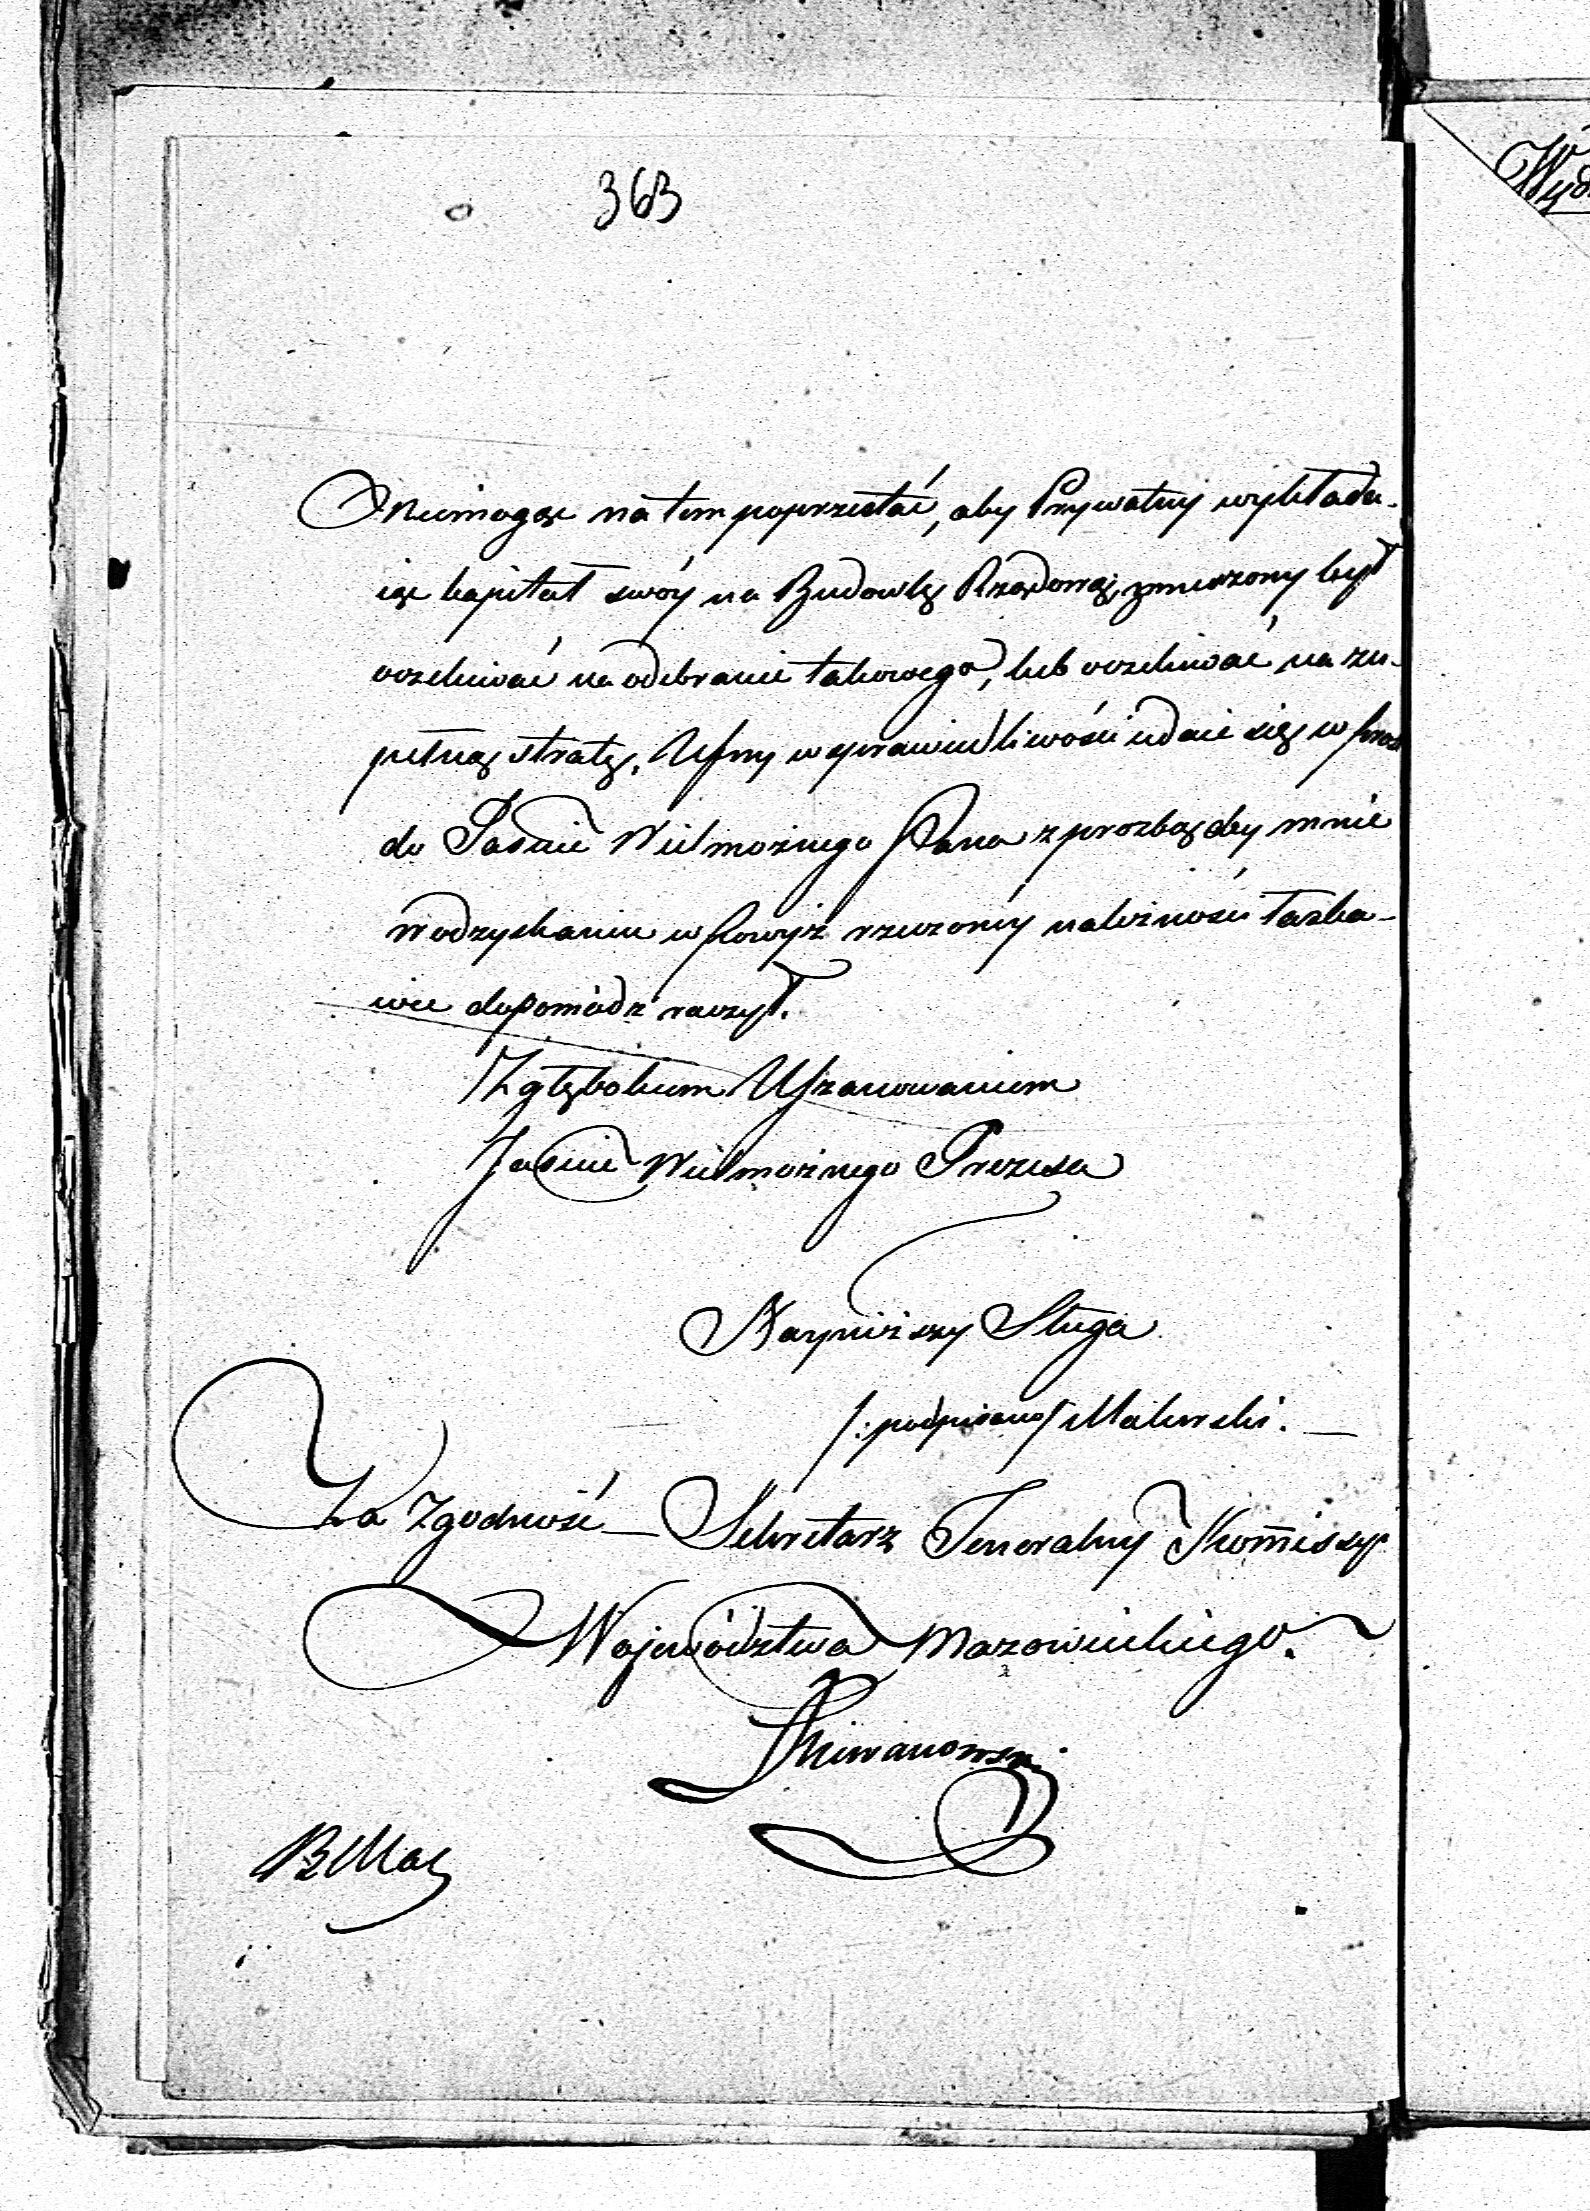 363
Niemogąc na tem poprzestać, aby Prywatny wykłada-
iąc kapitał swóy na Budowlę Rządową, zmuszony był
oczekiwać na odebranie takowego, lub oczekiwać na zu-
pełnę stratę, Ufny w sprawiedliwości udaie się w prost
do Jaśnie Wielmożnego Pana z prozbą aby mnie
w odzyskaniu w powyż rzeczoney należności łaska-
wie dopomódz raczył.
Z głębokiem Uszanowaniem
Jaśnie Wielmożnego Prezesa
Nayniższy Sługa
/: podpisano/ Makurski.
Za Zgodność — Sekretarz Jeneralny Kom̄issyi
Województwa Mazowieckiego.